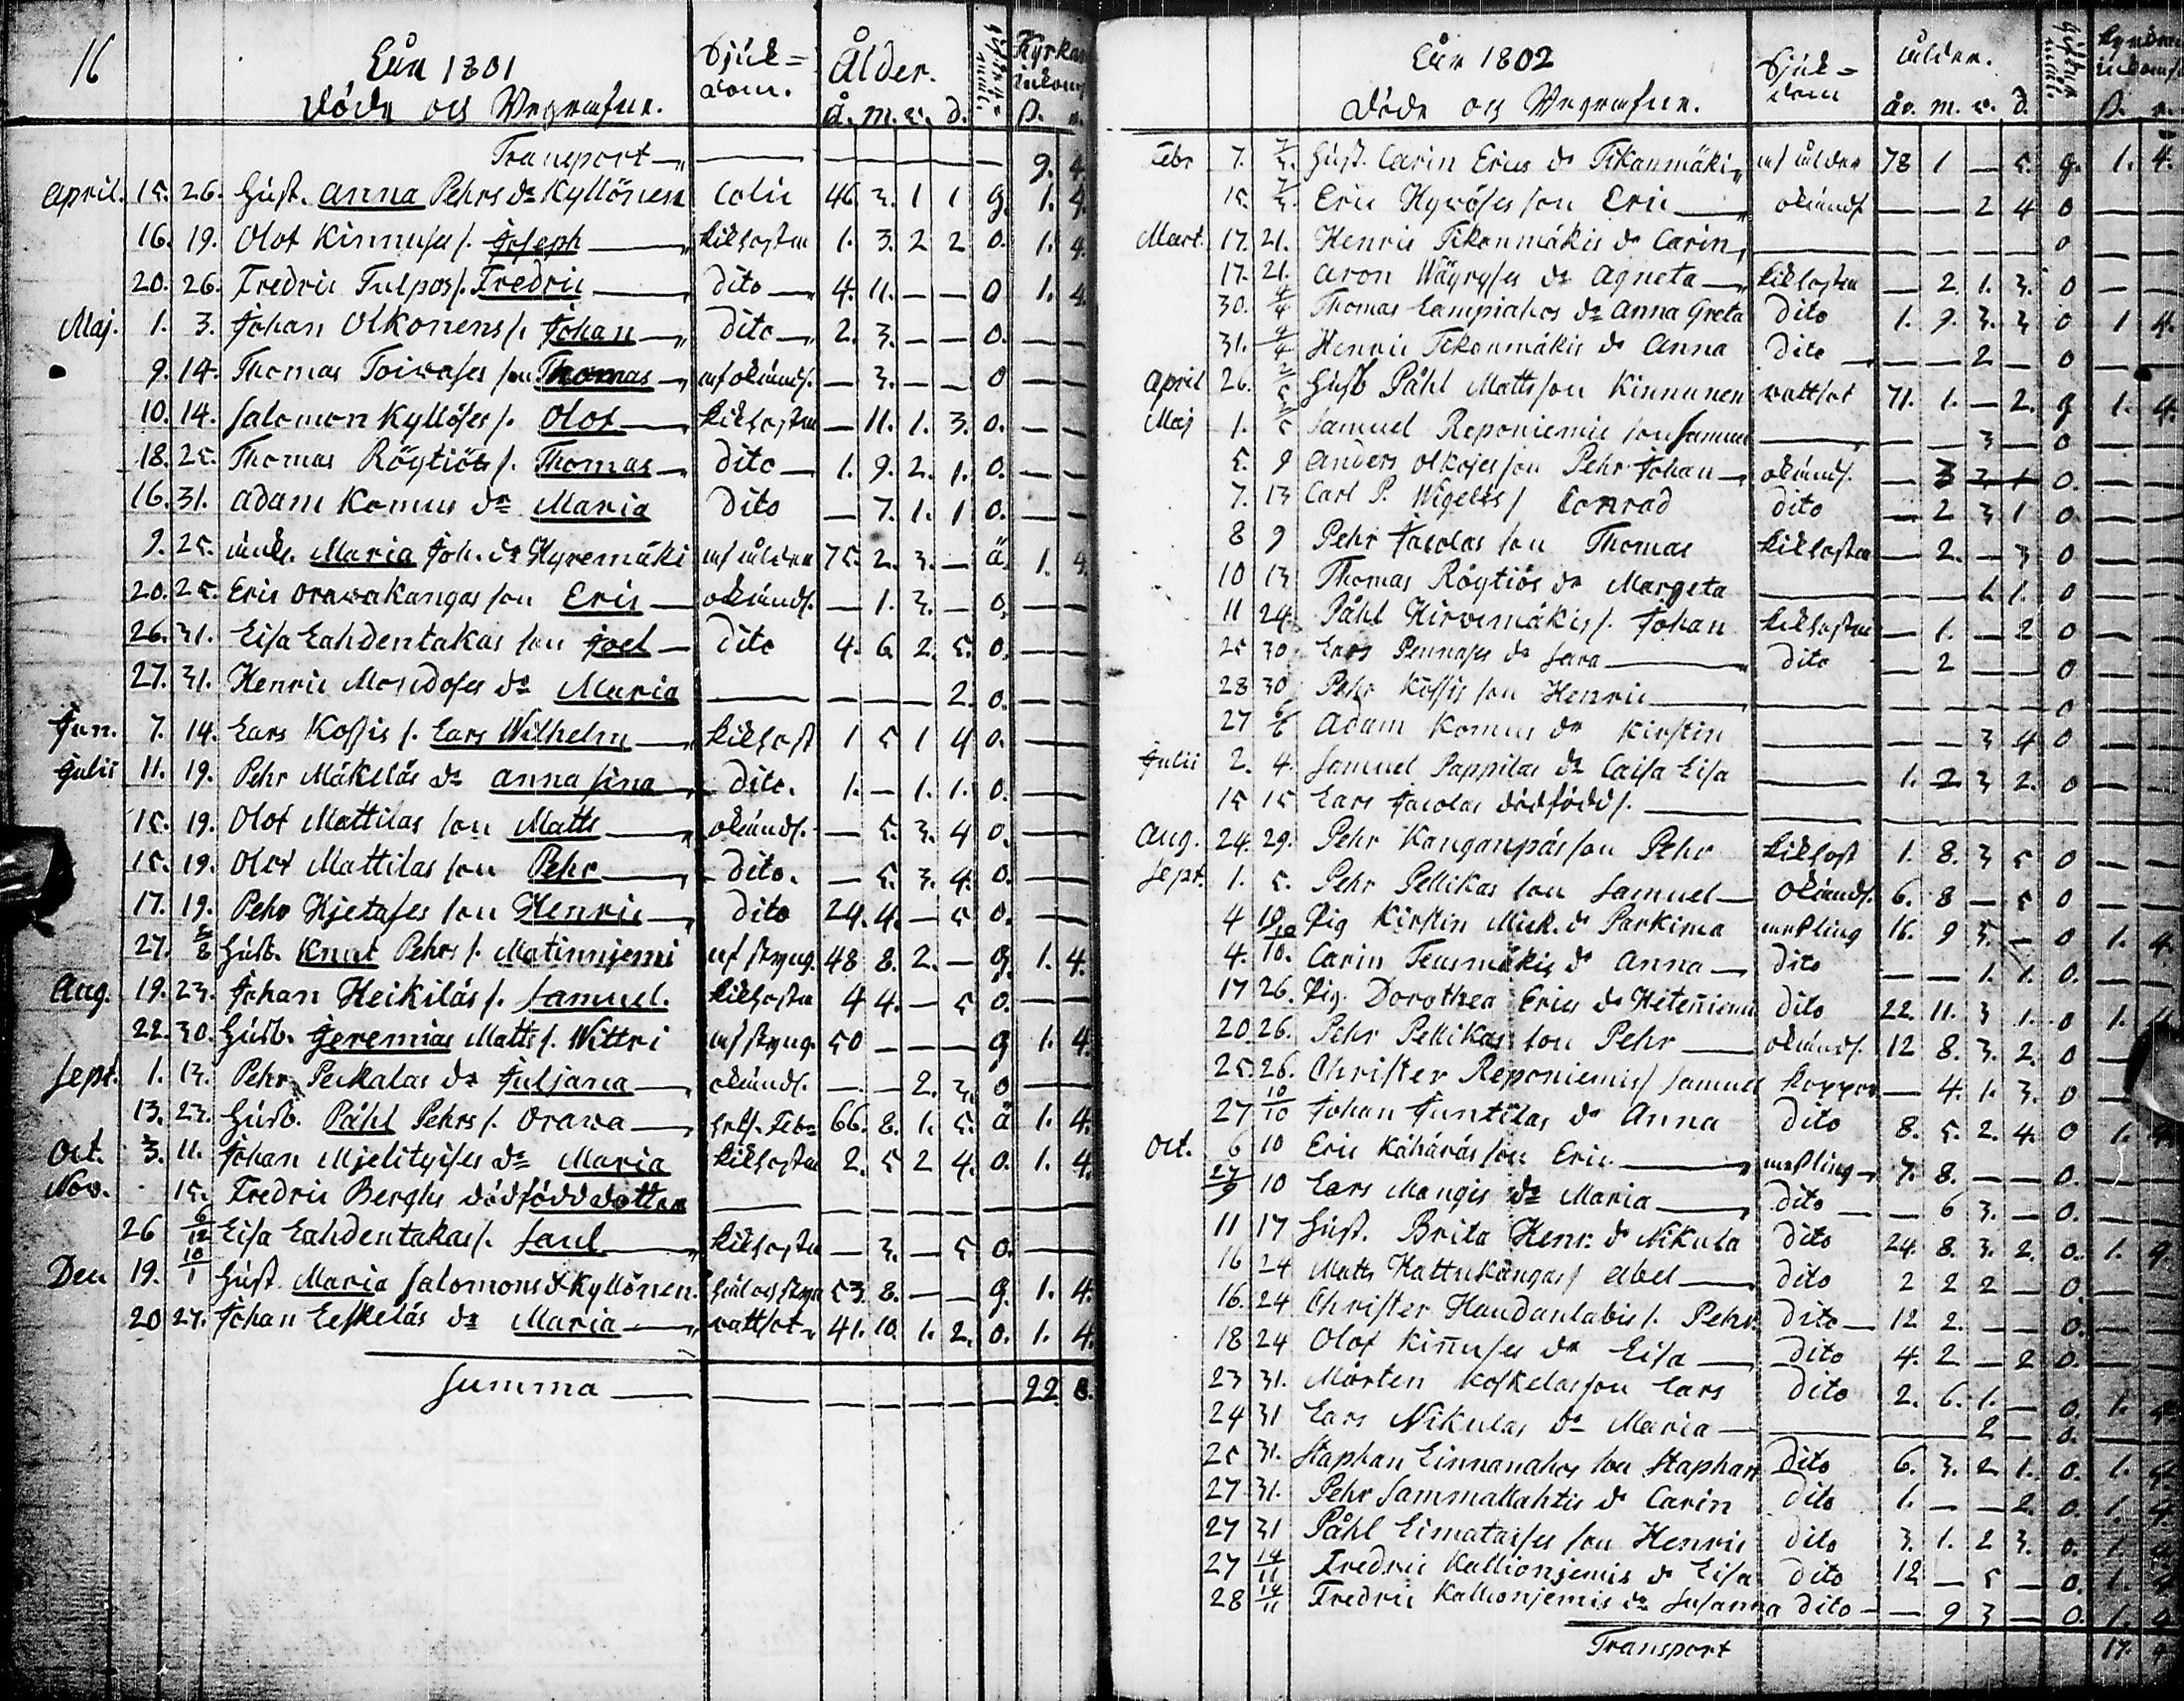 16
Åhr 1801
Döde och Begrafne.
Sjuk=
dom.
Ålder.
å. m. v. d.
Kyrkan
inkomst
ß. r.
Transport — 9. 4.
April. 15. 26. Hust. Anna Pehrs dr Kyllönen Colic 46 3. 1 1 g. 1. 4.
16. 19. Olof Kinnuses s. Joseph kikhostan 1. 3. 2 2 o. 1. 4.
20. 26. Fredric Tulpos s. Fredric dito 4. 11. — — o 1. 4.
Maj. 1. 3. Johan Olkonens s. Johan dito 2. 3. — — o. — —
9. 14. Thomas Toivases son Thomas af okänd s. — 3. — — o — —
10. 14. Salomon Kyllöses s. Olof kikhostan — 11. 1. 3. o. — —
18. 25. Thomas Röytiös s. Thomas dito 1. 9. 2. 1. o. — —
16. 31. Adam Komus dr Maria dito — 7. 1. 1 o. — —
9. 25. änk. Maria Joh. dr Hyremäki af ålder 75. 2. 3. — ä. 1. 4.
20. 25. Eric Oravakangas son Eric okänd s. — 1. 3. — o. — —
26. 31. Eisa Lahdentakas son Joel dito 4. 6. 2. 5. o. — —
27. 31. Henric Mosidoses dr Maria — — — — 2. o. — —
Jun. 7. 14. Lars Kossis s. Lars Wilhelm kikhost 1 5 1 4 o. — —
Julii 11. 19. Pehr Mäkeläs dr Anna Sina dito. 1. — 1. 1. o. — —
15. 19. Olof Mattilas son Matts okänd s. — 5. 3. 4 o. — —
15. 19. Olof Mattilas son Pehr dito. — 5. 3. 4. o. — —
17. 19. Pehr Hjetases son Henric dito 24. 4. — 5 o. — —
27. 2/8 Husb. Knut Pehrs s. Matinnjemi af styng. 48 8. 2. — g. 1. 4.
Aug. 19. 23. Johan Heikiläs s. Samuel. kikhostan 4 4. — 5 o. — —
22. 30. Husb. Jeremias Matts s. Wittri af styng. 50 — — — g 1. 4.
Sept. 1. 13. Pehr Peckalas dr Juljana okänd s. — — 2. 3. o — —
13. 23. Husb. Påhl Pehrs s. Orava 66. 8. 1. 5. ä 1. 4.
Oct. 3. 11. Johan Mjelityises dr Maria kikhostan 2. 5 2 4. o. 1. 4.
Nov. 15. Fredric Berghs dödfödd dotter — — —
26 6/12 Eisa Lahdentakas s. Saul kikhostan — 3. — 5 o. — —
Dec 19. 10/1 Hust. Maria Salomons dr Kyllönen. 53. 8. — — g. 1. 4.
20 27. Johan Leskeläs dr Maria vattsot 41. 10. 1. 2. o. 1. 4.
Summa — 22 8.
Åhr 1802
Döde och Begrafne.
Sjuk=
dom
ålder.
år. m. v. d.
Kyrkans
inkomst
ß. r.
Febr 7. 7/3. Hust. Carin Erics dr Tikanmäki af ålder 78 1 — 5. g. 1. 4.
15. 7/3. Eric Hyvöses son Eric okänd s. — — 2 4 o — —
Mart. 17. 21. Henric Tikanmäkis dr Carin — o — —
17. 21. Aron Wäyryses dr Agneta kikhostan — 2. 1. 3. o — —
30. 4/4 Thomas Lampiahos dr Anna Greta dito 1. 9. 3. 3 o 1 4.
31. 4/4 Henric Tikanmäkis dr Anna dito — — 2 — o — —
April 26. 2/5 Husb Påhl Matts son Kinnunen vattsot 71. 1. — 2. g 1. 4.
Maj 1. 2/5 Samuel Reponiemis son Samuel — — — 3 — o — —
5. 9 Anders Olkoses son Pehr Johan okänd s. — 3 3 1 o. — —
7. 13 Carl P. Wigelis s Conrad dito — 2 3 1 o. — —
8 9 Pehr Jacolas son Thomas kikhostan — 2. — 3 o — —
10 13 Thomas Röytiös dr Margeta — — — 1. 1. o — —
11 24. Påhl Hirvimäkis s. Johan kikhostan — 1. — 2 o — —
25 30 Lars Pennases dr Sara dito — 2 — — o — —
28 30 Pehr Kossis son Henric — — — — — o — —
27 6/6 Adam Komus dr Kirstin — — — 3 4 o — —
Julii 2. 4. Samuel Pappilas dr Caisa Lisa — 1. 2 3 2. o — —
15 15 Lars Jacolas dödfödd s. — — —
Aug. 24. 29. Pehr Kanganpäs son Pehr kikhost 1. 8. 3 5 o — —
Sept. 1. 5. Pehr Pellikas son Samuel okänd s. 6. 8 — 5 o — —
4 10/10 Pig Kirstin Mick. dr Parkima messling 16. 9 3. — o 1. 4.
4. 10. Carin Teusmäkis dr Anna dito — — 1. 1. o. — —
17 26. Pig. Dorothea Erics dr Heteniemi dito 22. 11. 3 1. o 1.
20. 26. Pehr Pellikas son Pehr okänd s. 12 8. 3. 2. o —
25. 26. Christer Reponiemis s Samuel koppor — 4. 1. 3. o —
27 10/10 Johan Juntilas dr Anna dito 8. 5. 2. 4. o 1. 4.
Oct. 6 10 Eric Käháräs son Eric messling 7. 8. — — o. — —
27/9 10 Lars Mangis dr Maria dito — 6 3. — o. — —
11 17 Hust. Brita Henr. dr Nikula dito 24. 8. 3. 2. o. 1. 9.
16 24 Matts Hattukangas s Abel dito 2 2 2 — o. — —
16. 24 Christer Haudanlabis s. Pehr. dito 12 2. — — o. — —
18 24 Olof Kiñuses dr Eisa dito 4. 2 — 2 o. — —
23 31. Mårten Koskelas son Lars dito 2. 6. 1. — o. 1. 4.
24 31 Lars Nikulas dr Maria — — — 2 — o. — —
25 31. Staphan Linnanahos son Staphan dito 6. 3. 2. 1. o. 1. 4.
27 31. Pehr Sammallahtis dr Carin dito 1. — — 2. o. 1. 4.
27 31 Påhl Limataises son Henric dito 3. 1. 2 3. o. 1. 4
27 14/11 Fredric Kallionjemis dr Eisa dito 12 — 5 — o. 1. 4
28 14/11 Fredric Kallionjemis dr Susanna dito — 9 3 — o. 1. 4
Transport 17. 4